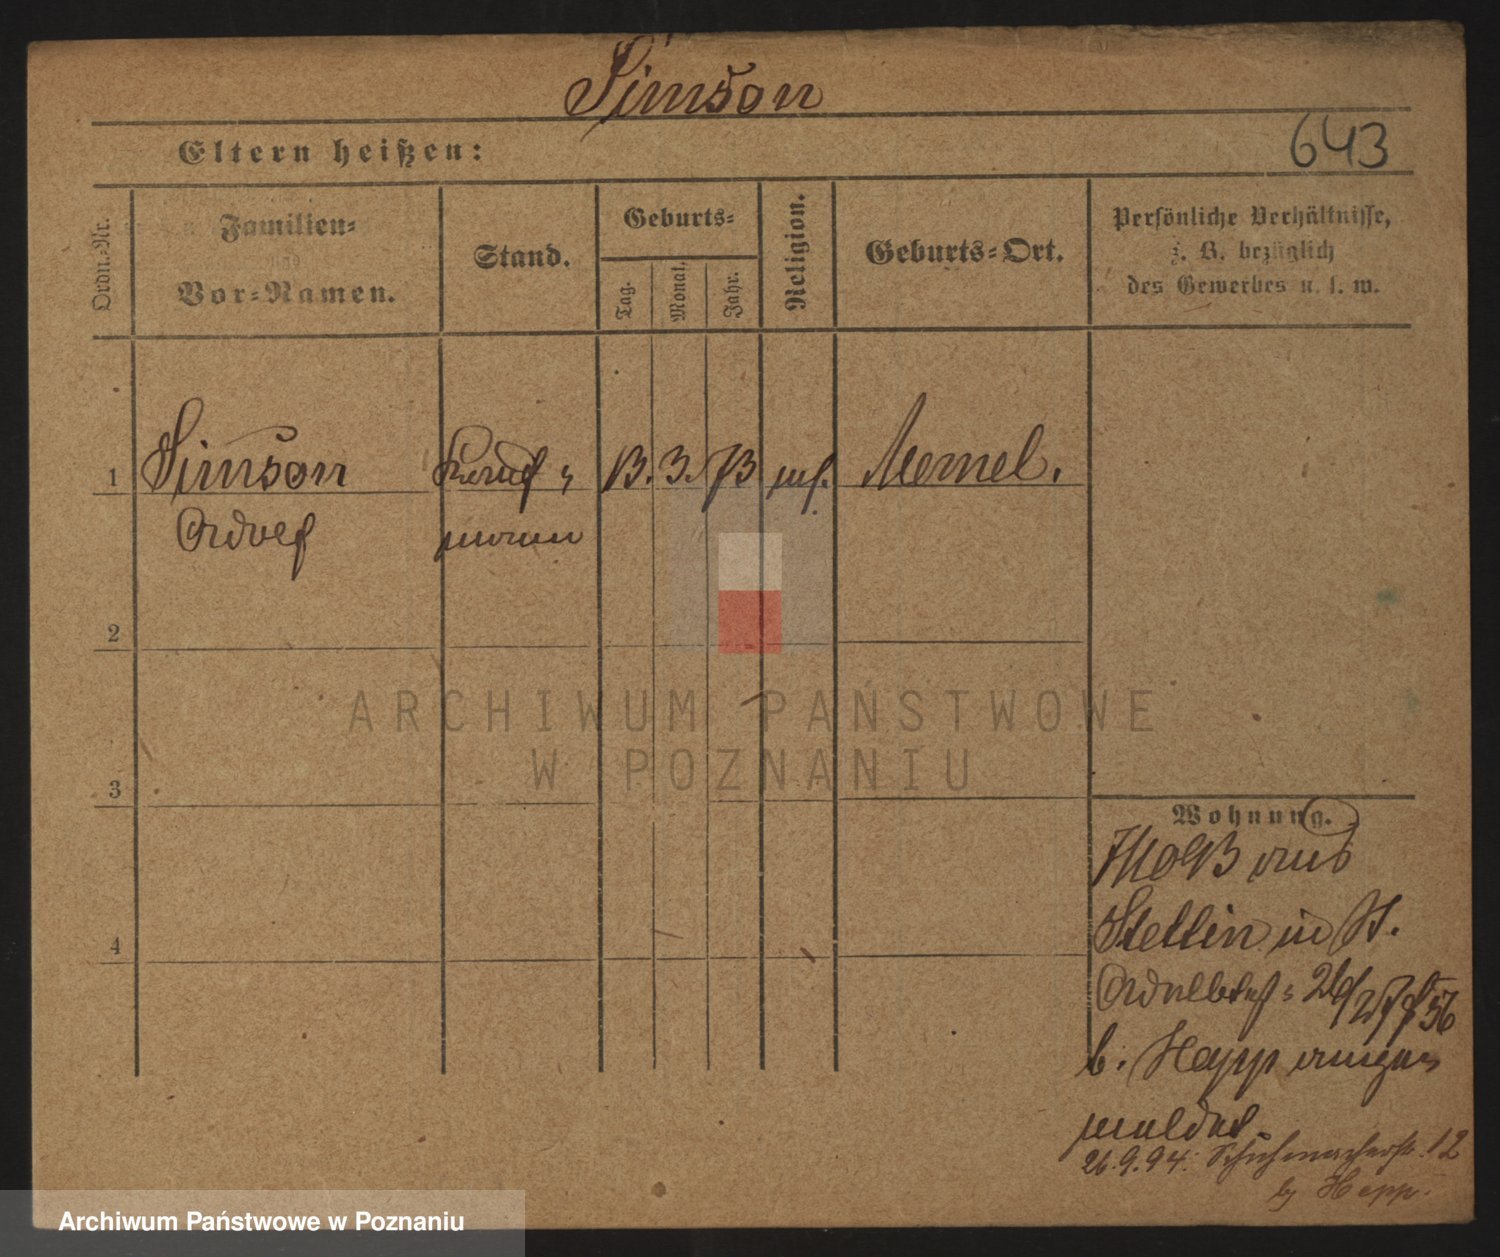 Simson
Eltern heißen:
643
Ordn.-Nr.
Familien-
und
Vor-Namen.
Stand.
Geburts-
Tag.
Monat.
Jahr.
Religion.
Geburts-Ort.
Persönliche Verhältnisse,
z. B. bezüglich
des Gewerbes u. s. w.
1 Simson Kauf- 13. 3. 73 jüd. Memel.
Adolf mann
2
3
4
Wohnung.
aus
Stettin in St.
Adalbert-
b. Hepp ange-
meldet
26.9.94. Schuhmacherstr. 12
b/ Hepp.
ARCHIWUM PAŃSTWOWE
W POZNANIU
Archiwum Państwowe w Poznaniu